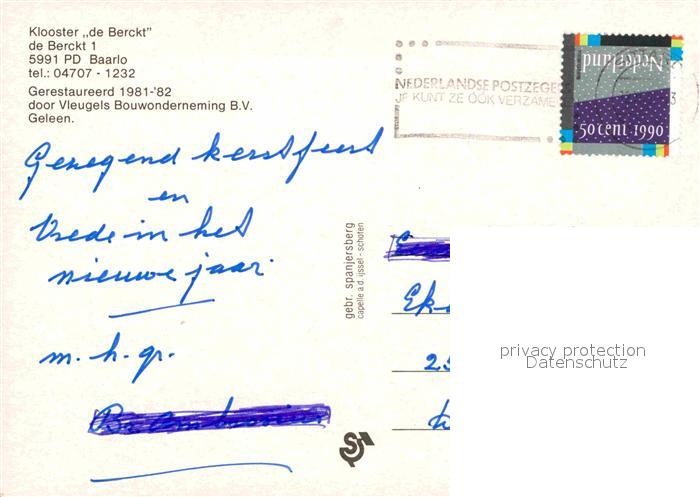 Klooster „de Berckt"
de Berckt 1
5991 PD Baarlo
tel.: 04707 - 1232
Gerestaureerd 1981-'82
door Vleugels Bouwonderneming B.V.
Geleen.
NEDERLANDSE POSTZEGE
JE KUNT ZE ÓÓK VERZAME
Nederland
50 cent 1990
Gezegend kerstfeest
en
Vrede in het
nieuwe jaar.
m. h. gr.
gebr. spanjersberg
capelle a.d. ijssel - schoten
privacy protection
Datenschutz